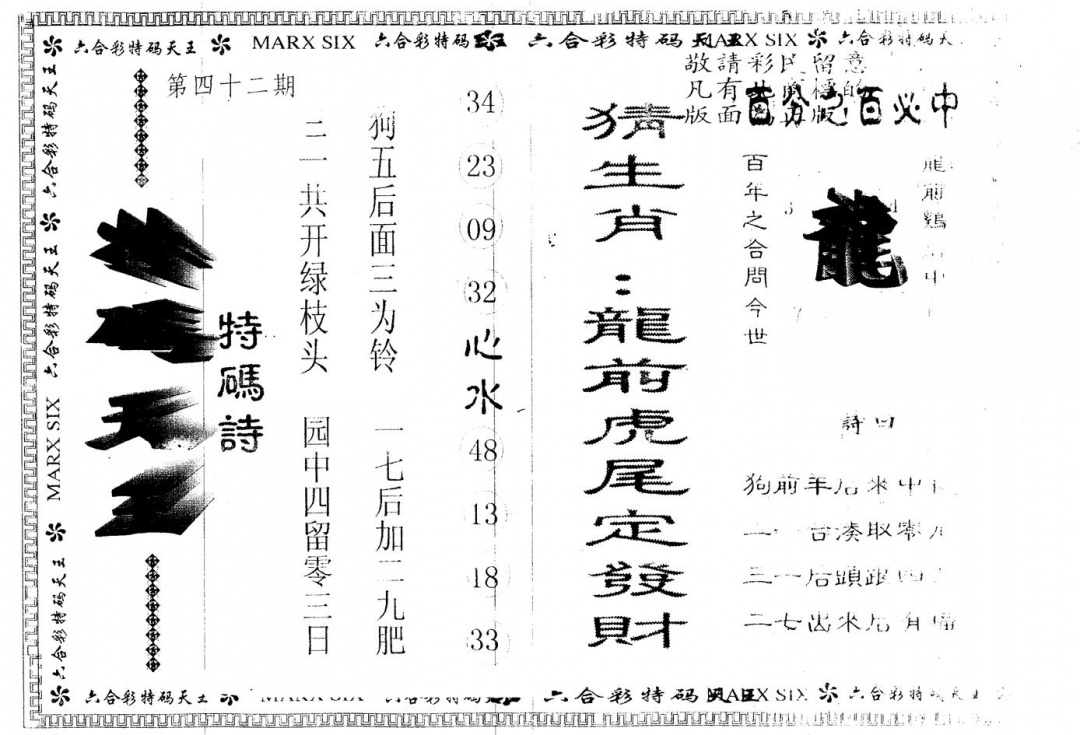 六合彩特码天王
MARX SIX
六合彩特码
六合彩特码天王
MARX SIX
六合彩特码天
敬請彩民留意
凡有
的
版面
百分之百必中
第四十二期
特碼詩
狗五后面三为铃
一七后加二九肥
二一共开绿枝头
园中四留零三日
34
23
09
32
心水
48
13
18
33
猜生肖：龍前虎尾定發財
龍
百年之合問今世
龍前鷄
中
詩曰
狗前羊后来中
二一合凑取零
三一后頭跟四
二七出来后有
六合彩特码天王
六合彩特码天王
MARX SIX
六合彩特码天王
六合彩特码天王
MARX SIX
六合彩特码
六合彩特码天王
MARX SIX
六合彩特码天王